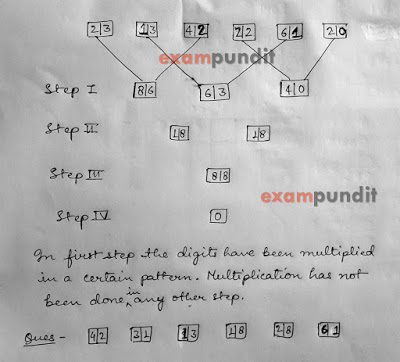 2|3 1|3 4|2 7|2 6|1 2|0
exampundit
Step I 8|6 6|3 4|0
Step II 1|8 1|8
Step III 8|8
exampundit
Step IV 0
In first step the digits have been multiplied
in a certain pattern. Multiplication has not
been done in any other step.
Ques - 4|2 3|1 1|3 1|8 2|8 6|1